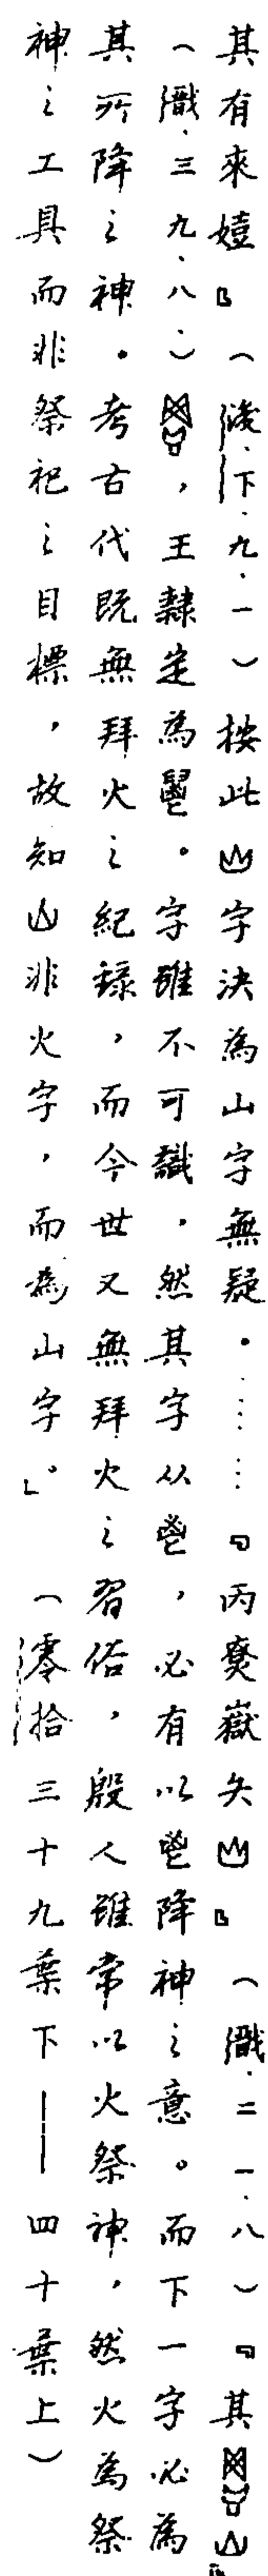 其有來嬉』（後.下.九.一）按此字決為山字無疑。……『丙寮嶽矢』（戩.二一.八）『其
（戩.三九.八.），王隸定為。字雖不可識，然其字从鬯，必有以鬯降神之意。而下一字必為
其所降之神。考古代既無拜火之紀錄，而今世又無拜火之習俗，殷人雖常以火祭神，然火為祭
神之工具而非祭祀之目標，故知非火字，而為山字。」（零拾三十九葉下——四十葉上）